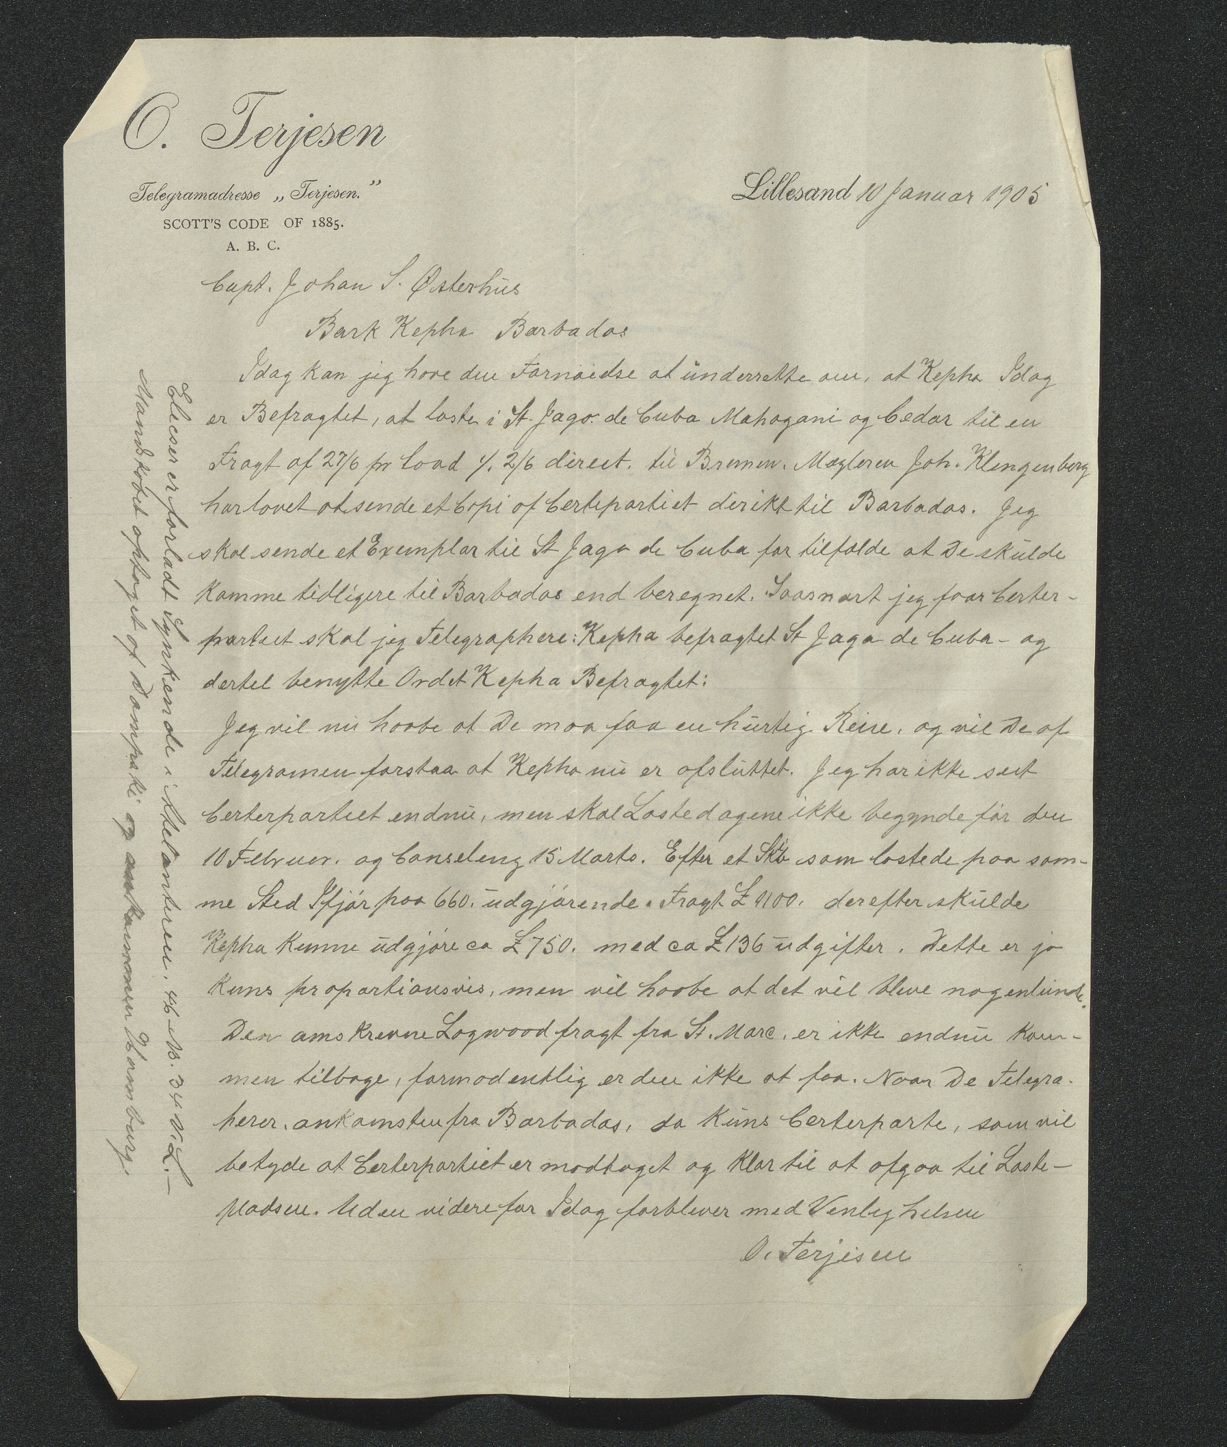 O. Terjesen
Telegramadresse „Terjesen."
SCOTT'S CODE OF 1885.
A. B. C.
Lillesand 10 Januar 1905
Capt. Johan S. Østerhus
Bark Kepha Barbados
Idag kan jeg have den Fornøielse at underrette om, at Kepha Idag
er Befragtet, at laste i St Jago de Cuba Mahogani og Cedar til en
Fragt af 27/6 pr Load 2/6 direct. til Bremen. Mægleren Joh. Klingenberg
har lovet at sende et Copi af Certepartiet direkt til Barbados. Jeg
skal sende et Exemplar til St Jago de Cuba for tilfælde at De skulde
komme tidligere til Barbados end beregnet. Saasnart jeg faar Certer-
partiet skal jeg Telegraphere: Kepha befragtet St Jago de Cuba - og
dertel benytte Ordet Kepha Befragtet:
Jeg vil nu haabe at De maa faa en hurtig Reise, og vil De af
Telegramen forstaa at Kepha nu er afsluttet. Jeg har ikke seet
Certerpartiet endnu, men skal Lastedagene ikke begynde før den
10 Februar. og Canseleng 15 Marts. Efter et Skb som lastede paa sam-
me Sted Ifjør paa 660. udgjørende Fragt £ 1100. derefter skulde
Kepha kunne udgjøre ca £ 750. med ca £ 136 udgifter. Dette er jo
kuns proportionsvis, men vil haabe at det vil blive nogenlunde.
Den omskrevne Logwoodfragt fra St. Marc, er ikke endnu kom-
men tilbage, formodentlig er den ikke at faa. Naar De Telegra-
herer. ankomsten fra Barbados, da kuns Certerparte, som vil
betyde at Certerpartiet er modtaget og klar til at afgaa til Laste-
pladsen. Uden videre for Idag forbliver med Venlig hilsen
O. Terjesen
Elieser er forladt Synkende i Atelanteren, 46 N. 34 V. L.-
Mandskabet optaget af Dampski og ankommen Hamburg.